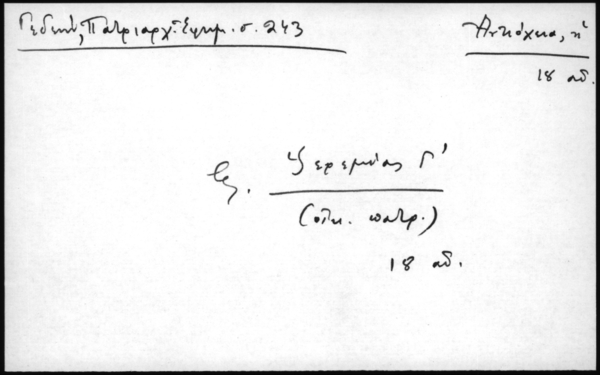 Γεδεών, Πατριαρχ. Εφημ. σ. 243
Αντιόχεια, η
18 αι.
Ἱερεμίας Γ'
(οἰκ. πατρ.)
18 αι.